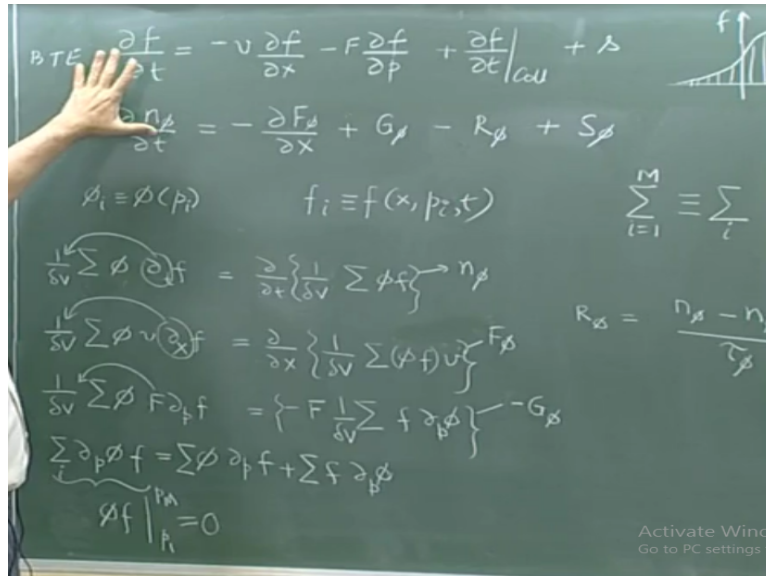 BTE ∂f/∂t = -v ∂f/∂x - F ∂f/∂p + ∂f/∂t|Coll + s
f
∂nφ/∂t = - ∂Fφ/∂x + Gφ - Rφ + Sφ
φi ≡ φ(pi) fi ≡ f(x, pi, t)
M Σ i=1 ≡ Σ i
1/δV Σ φ ∂t f = ∂/∂t {1/δV Σ φf} → nφ
Rφ = nφ - n / τφ
1/δV Σ φ v ∂x f = ∂/∂x {1/δV Σ(φf)v} Fφ
1/δV Σ φ F ∂p f = {-F 1/δV Σ f ∂pφ} -Gφ
Σi ∂p φf = Σφ ∂p f + Σ f ∂p φ
φf |p1 pM = 0
Activate Win
Go to PC settings